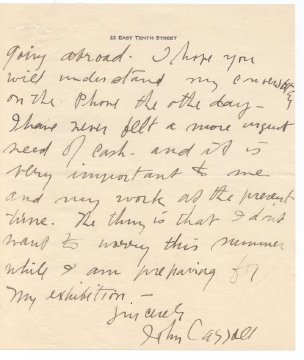 22 EAST TENTH STREET
going abroad. I hope you
will understand my
on the phone the othe day—
I have never felt a more urgent
need of cash. and it is
very important to me
and my work at the present
time. The thing is that I dont
want to worry this summer
while I am preparing for
my exhibition.—
Sincerely
John Carroll